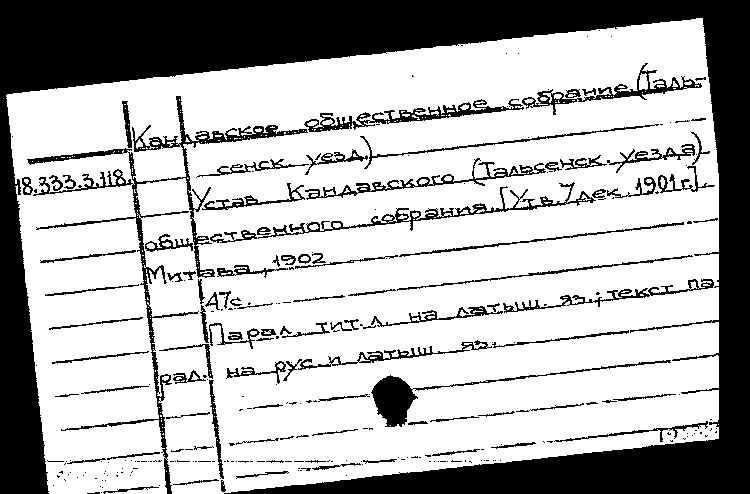 Кандавское общественное собрание (Таль-
сенск. уезд)
18.333.3.118.
Устав Кандавского (Тальсенск. уезда)
общественного собрания. [Утв. 7 дек. 1901 г.].
Митава, 1902
47с.
Парал. тит. л. на латыш. яз.; текст па-
рал. на рус. и латыш. яз.